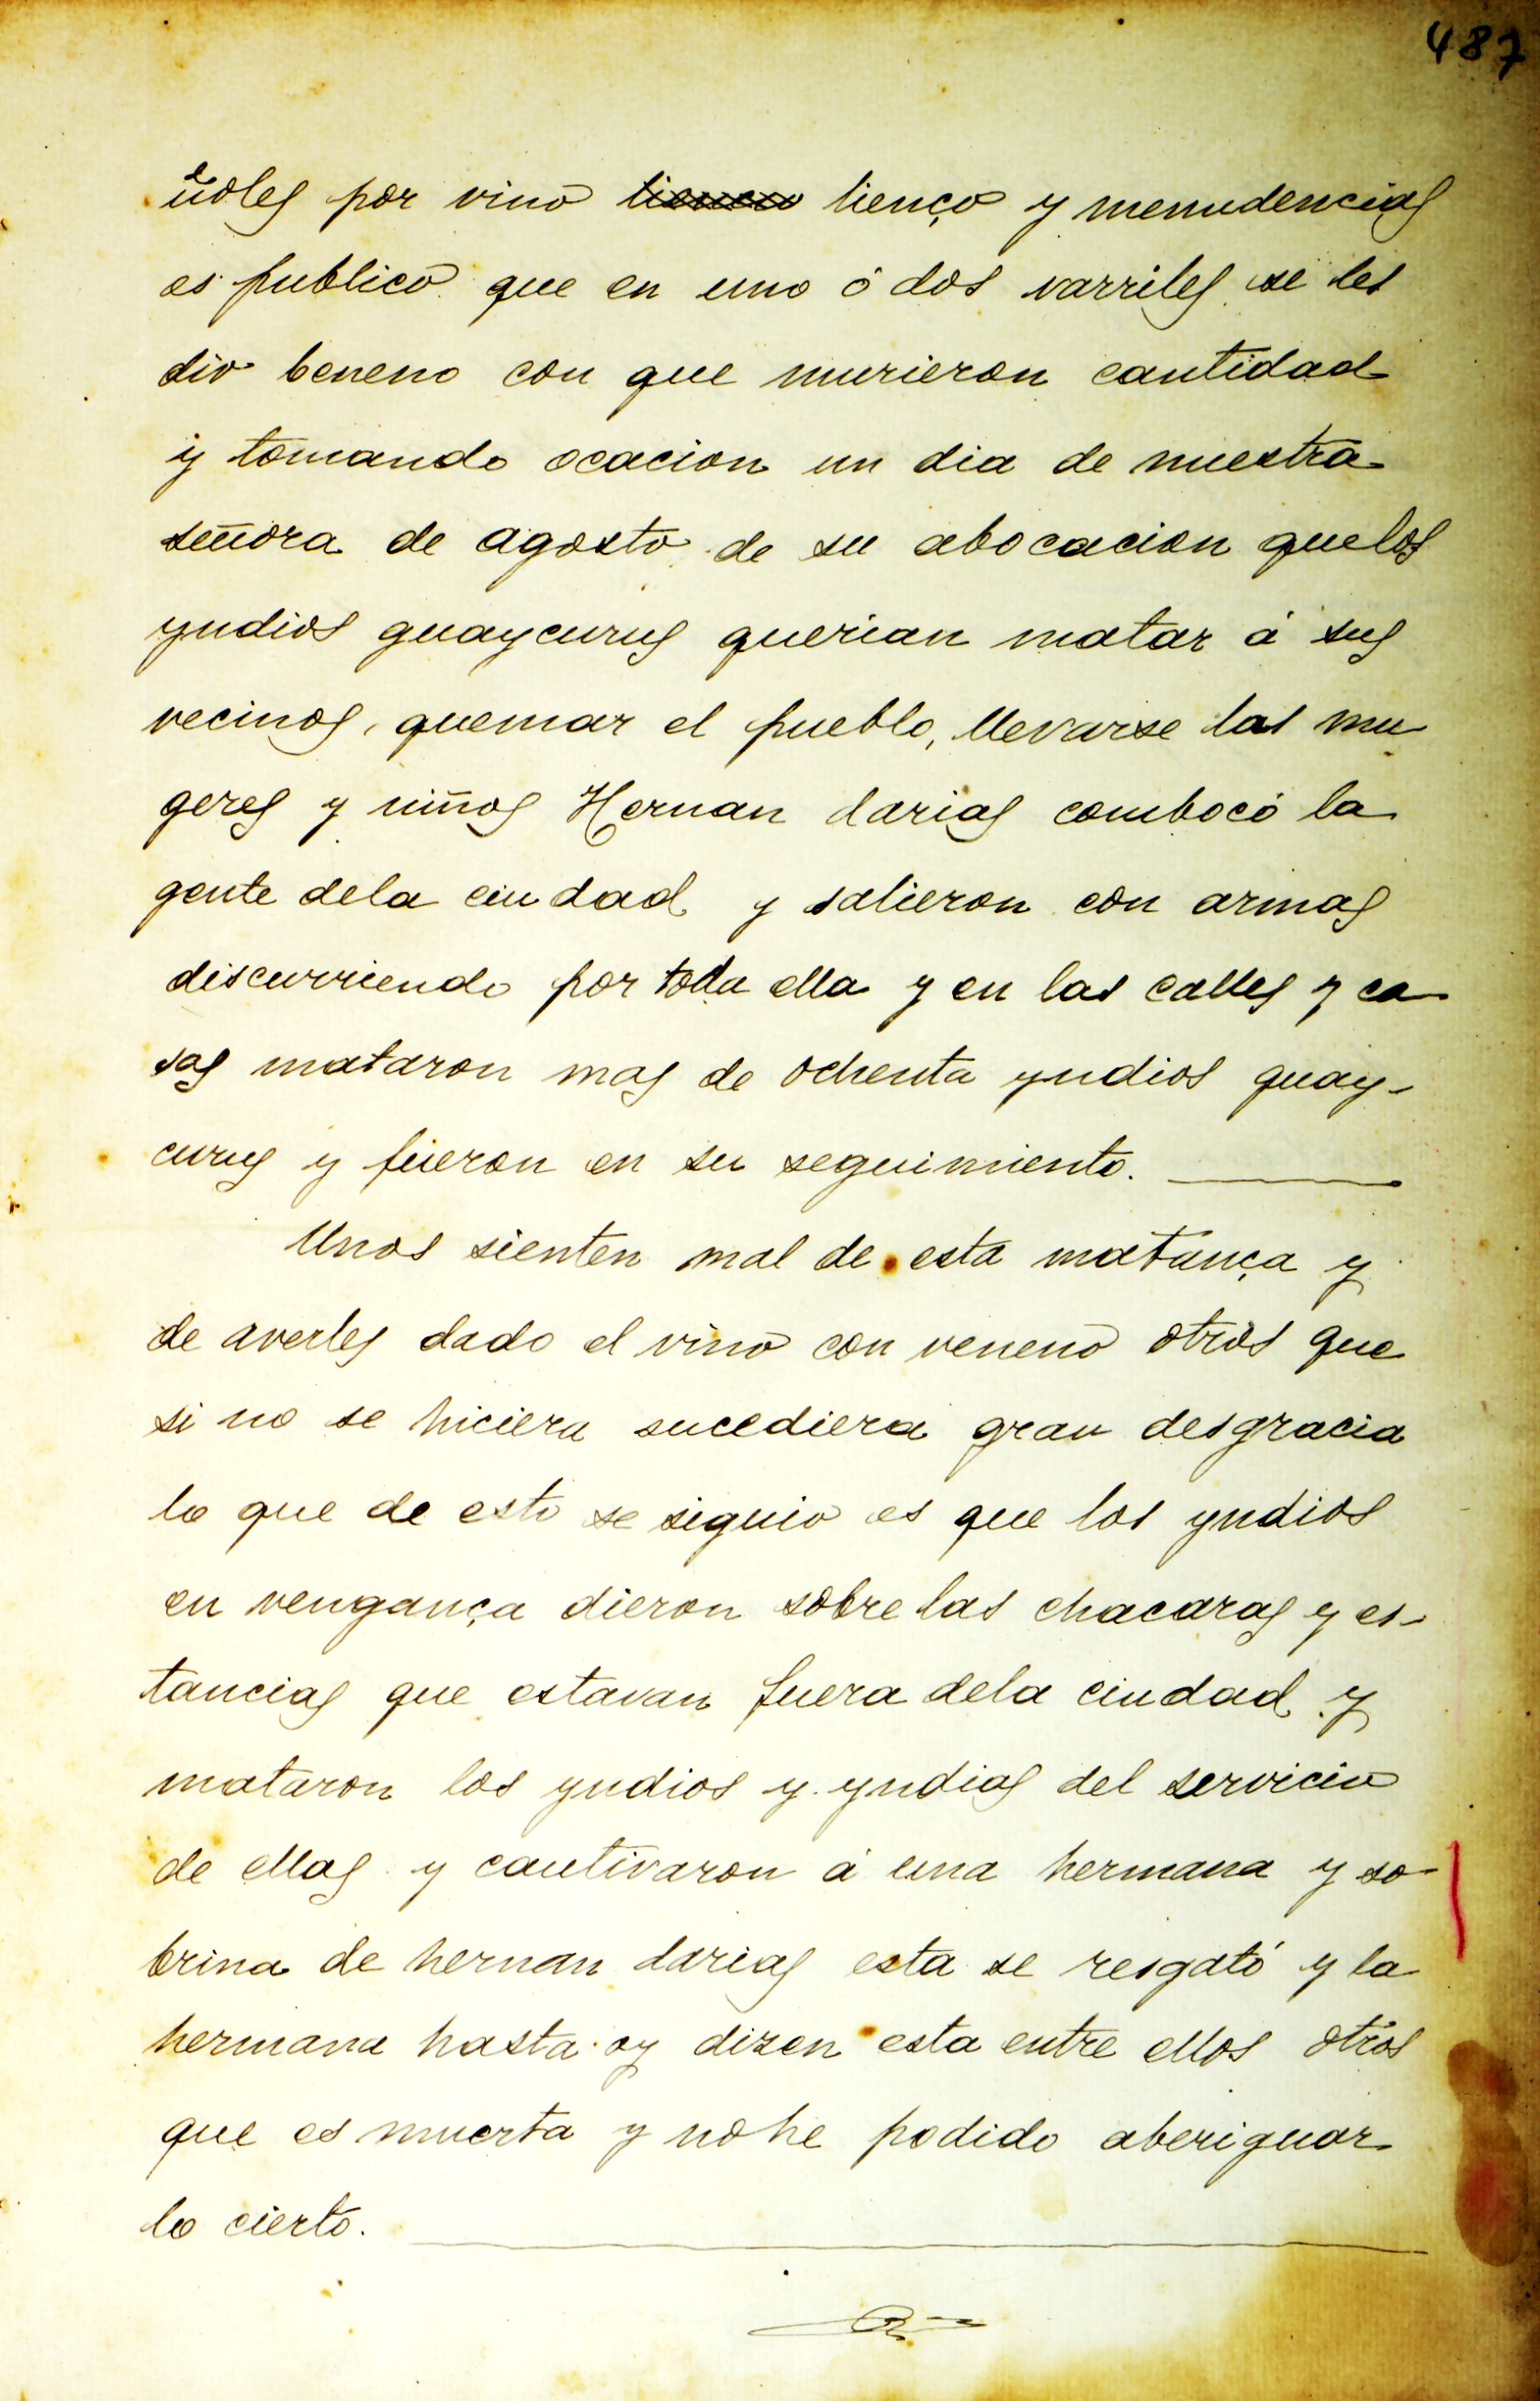 487
ñoles por vino lienço y menudencias
es publico que en uno ó dos varriles se les
dio beneno con que murieron cantidad
y tomando ocacion un dia de nuestra
señora de agosto de su abocacion quelos
yndios guaycurus querian matar á sus
vecinos, quemar el pueblo, llevarse las mu
geres y niños Hernan darias combocó la
gente dela ciudad y salieron con armas
discurriendo por toda ella y en las calles y ca
sas mataron mas de ochenta yndios guay-
curus y fueron en su seguimiento.
Unos sienten mal de esta matança y
de averles dado el vino con veneno otros que
si no se hiciera sucediera gran desgracia
lo que de esto se siguio es que los yndios
en vengança dieron sobre las chacaras y es-
tancias que estavan fuera dela ciudad y
mataron los yndios y yndias del servicio
de ellas y cautivaron á una hermana y so-
brina de hernan darias esta se resgató y la
hermana hasta oy dizen esta entre ellos otros
que es muerta y no he podido aberiguar
lo cierto.